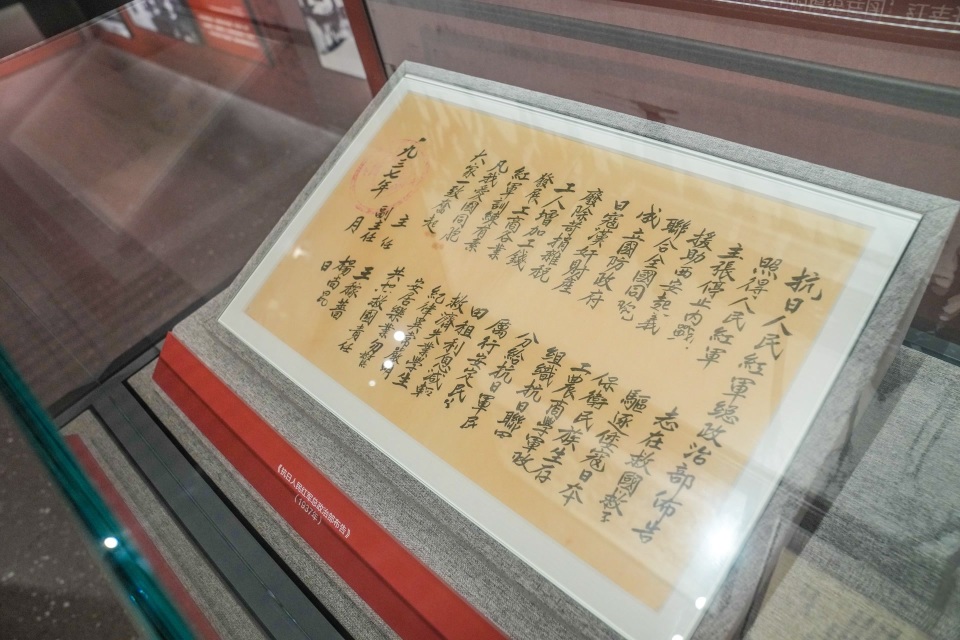 抗日人民紅軍總政治部佈告
照得人民紅軍 志在救國救〻
主張停止内戰 驅逐倭寇日本
援助西安起義 保衛民族生存
聯合全國同胞 工農商學軍政
成立國防政府 組織抗日聯
日寇漢奸財產 分給抗日軍民
廢除苛捐雜税 厲行安定民〻
工人增加工錢 田租利息減輕
發展工商各業 救濟失業學生
紅軍訓練有素 紀律異常嚴明
凡我愛國同胞 安居樂業勿驚
大家一致奮起 共担救國責任
主任 王稼薔
副主任 楊尚昆
一九三七年 月 日
《抗日人民红军总政治部布告》
（1937年）